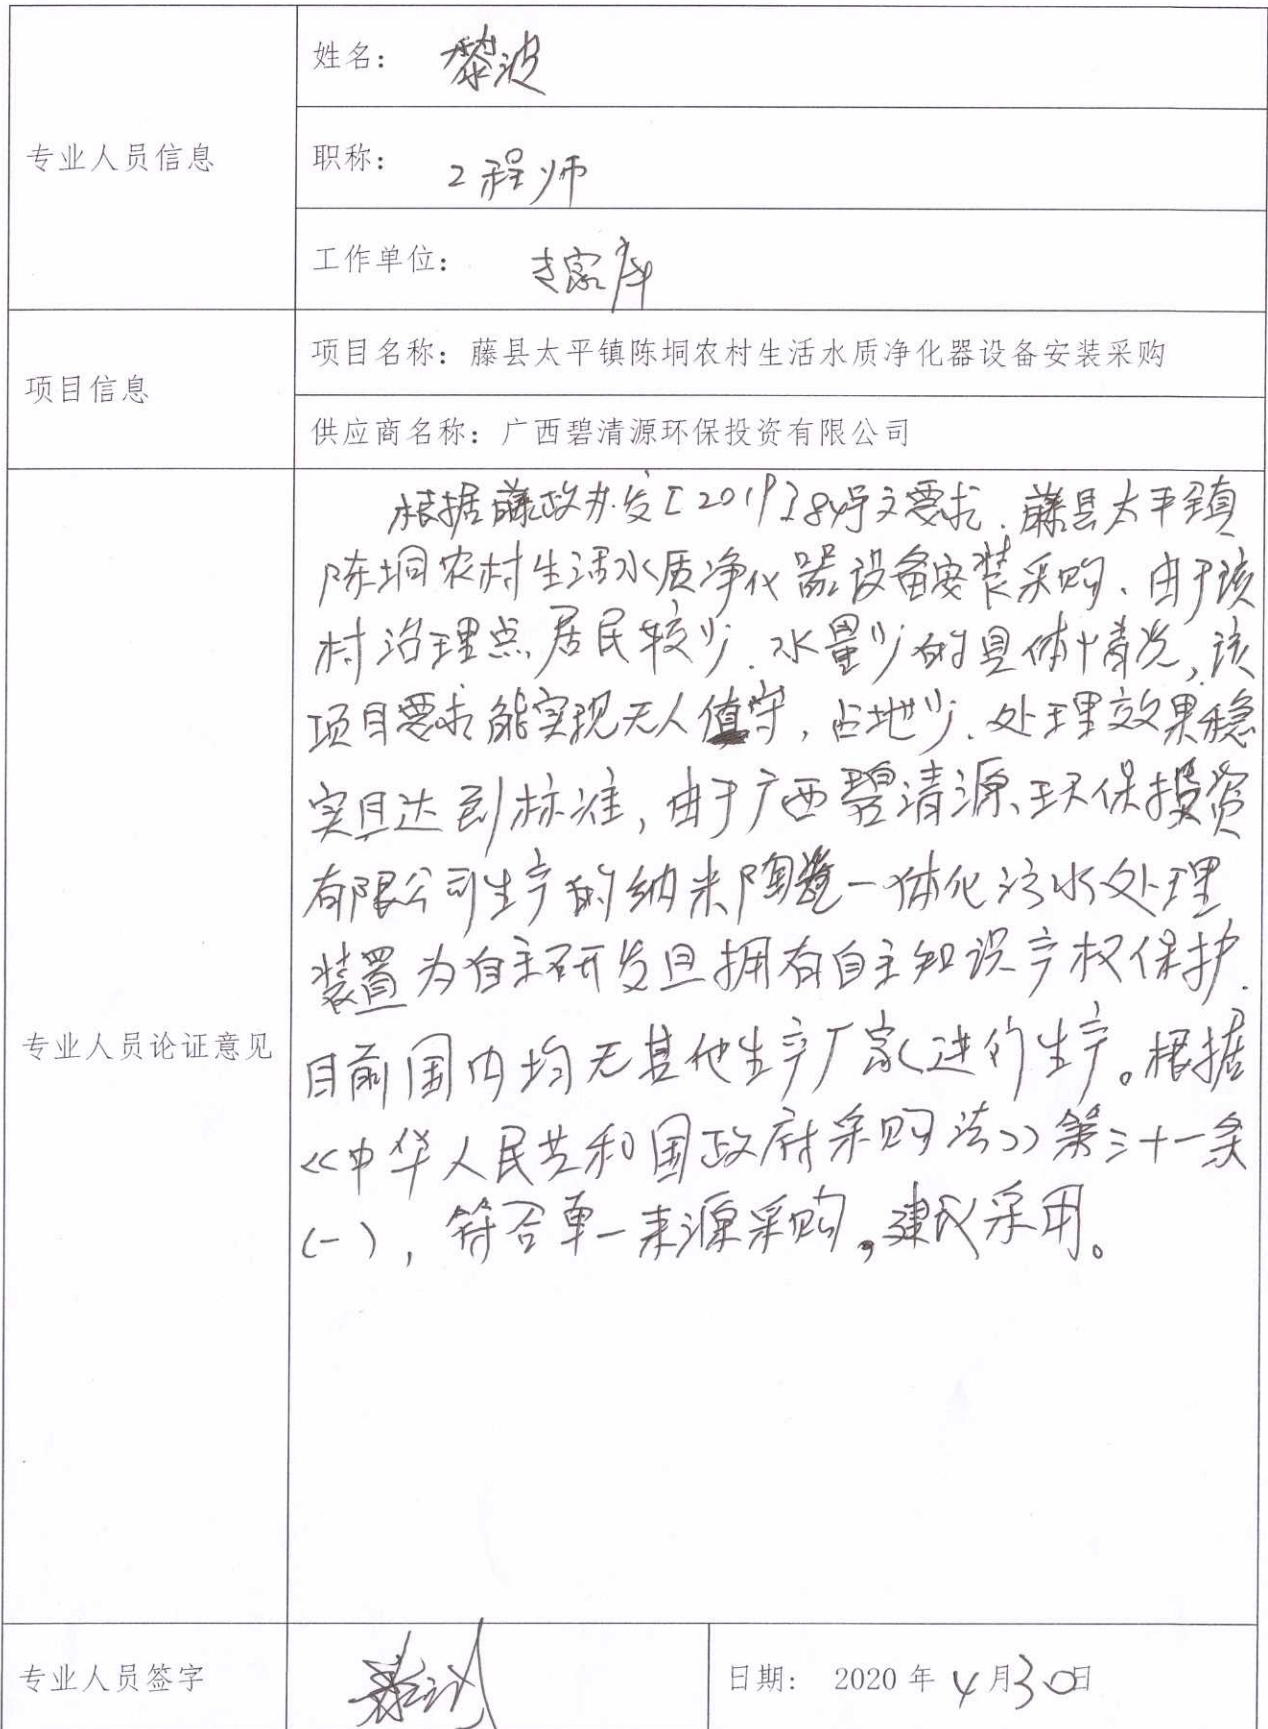 专业人员信息
姓名：黎波
职称：工程师
工作单位：专家库
项目信息
项目名称：藤县太平镇陈垌农村生活水质净化器设备安装采购
供应商名称：广西碧清源环保投资有限公司
专业人员论证意见
根据藤政办发[2019]84号文要求、藤县太平镇
陈垌农村生活水质净化器设备安装采购、由于该
村治理点居民较少、水量少的具体情况，该
项目要求能实现无人值守，占地少、处理效果稳
实且达到标准，由于广西碧清源环保投资
有限公司生产的纳米陶瓷一体化污水处理
装置为自主研发且拥有自主知识产权保护.
目前国内均无其他生产厂家进行生产。根据
《中华人民共和国政府采购法》第三十一条
(一)，符合单一来源采购，建议采用。
专业人员签字
日期： 2020年4月30日